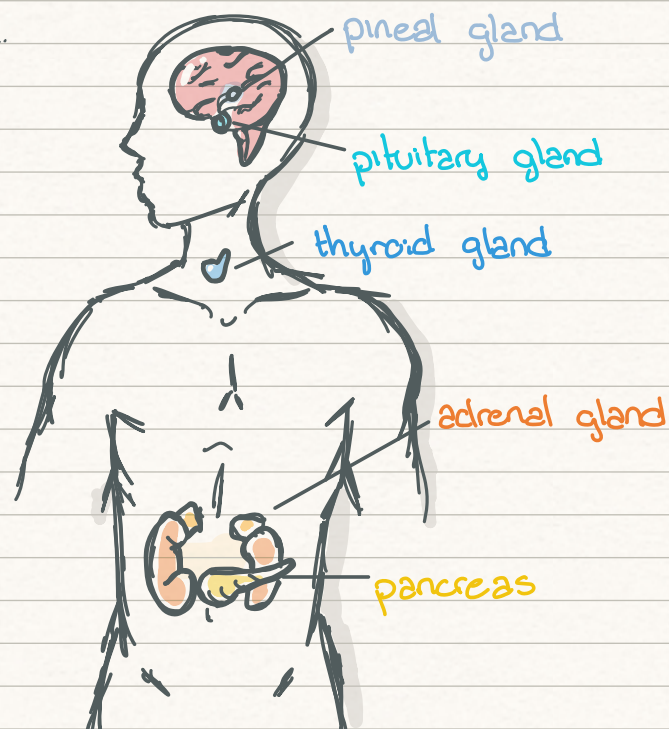 pineal gland
pituitary gland
thyroid gland
adrenal gland
pancreas